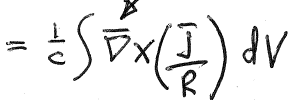 = 1/c ∫ ∇̅ × (J̅/R) dV